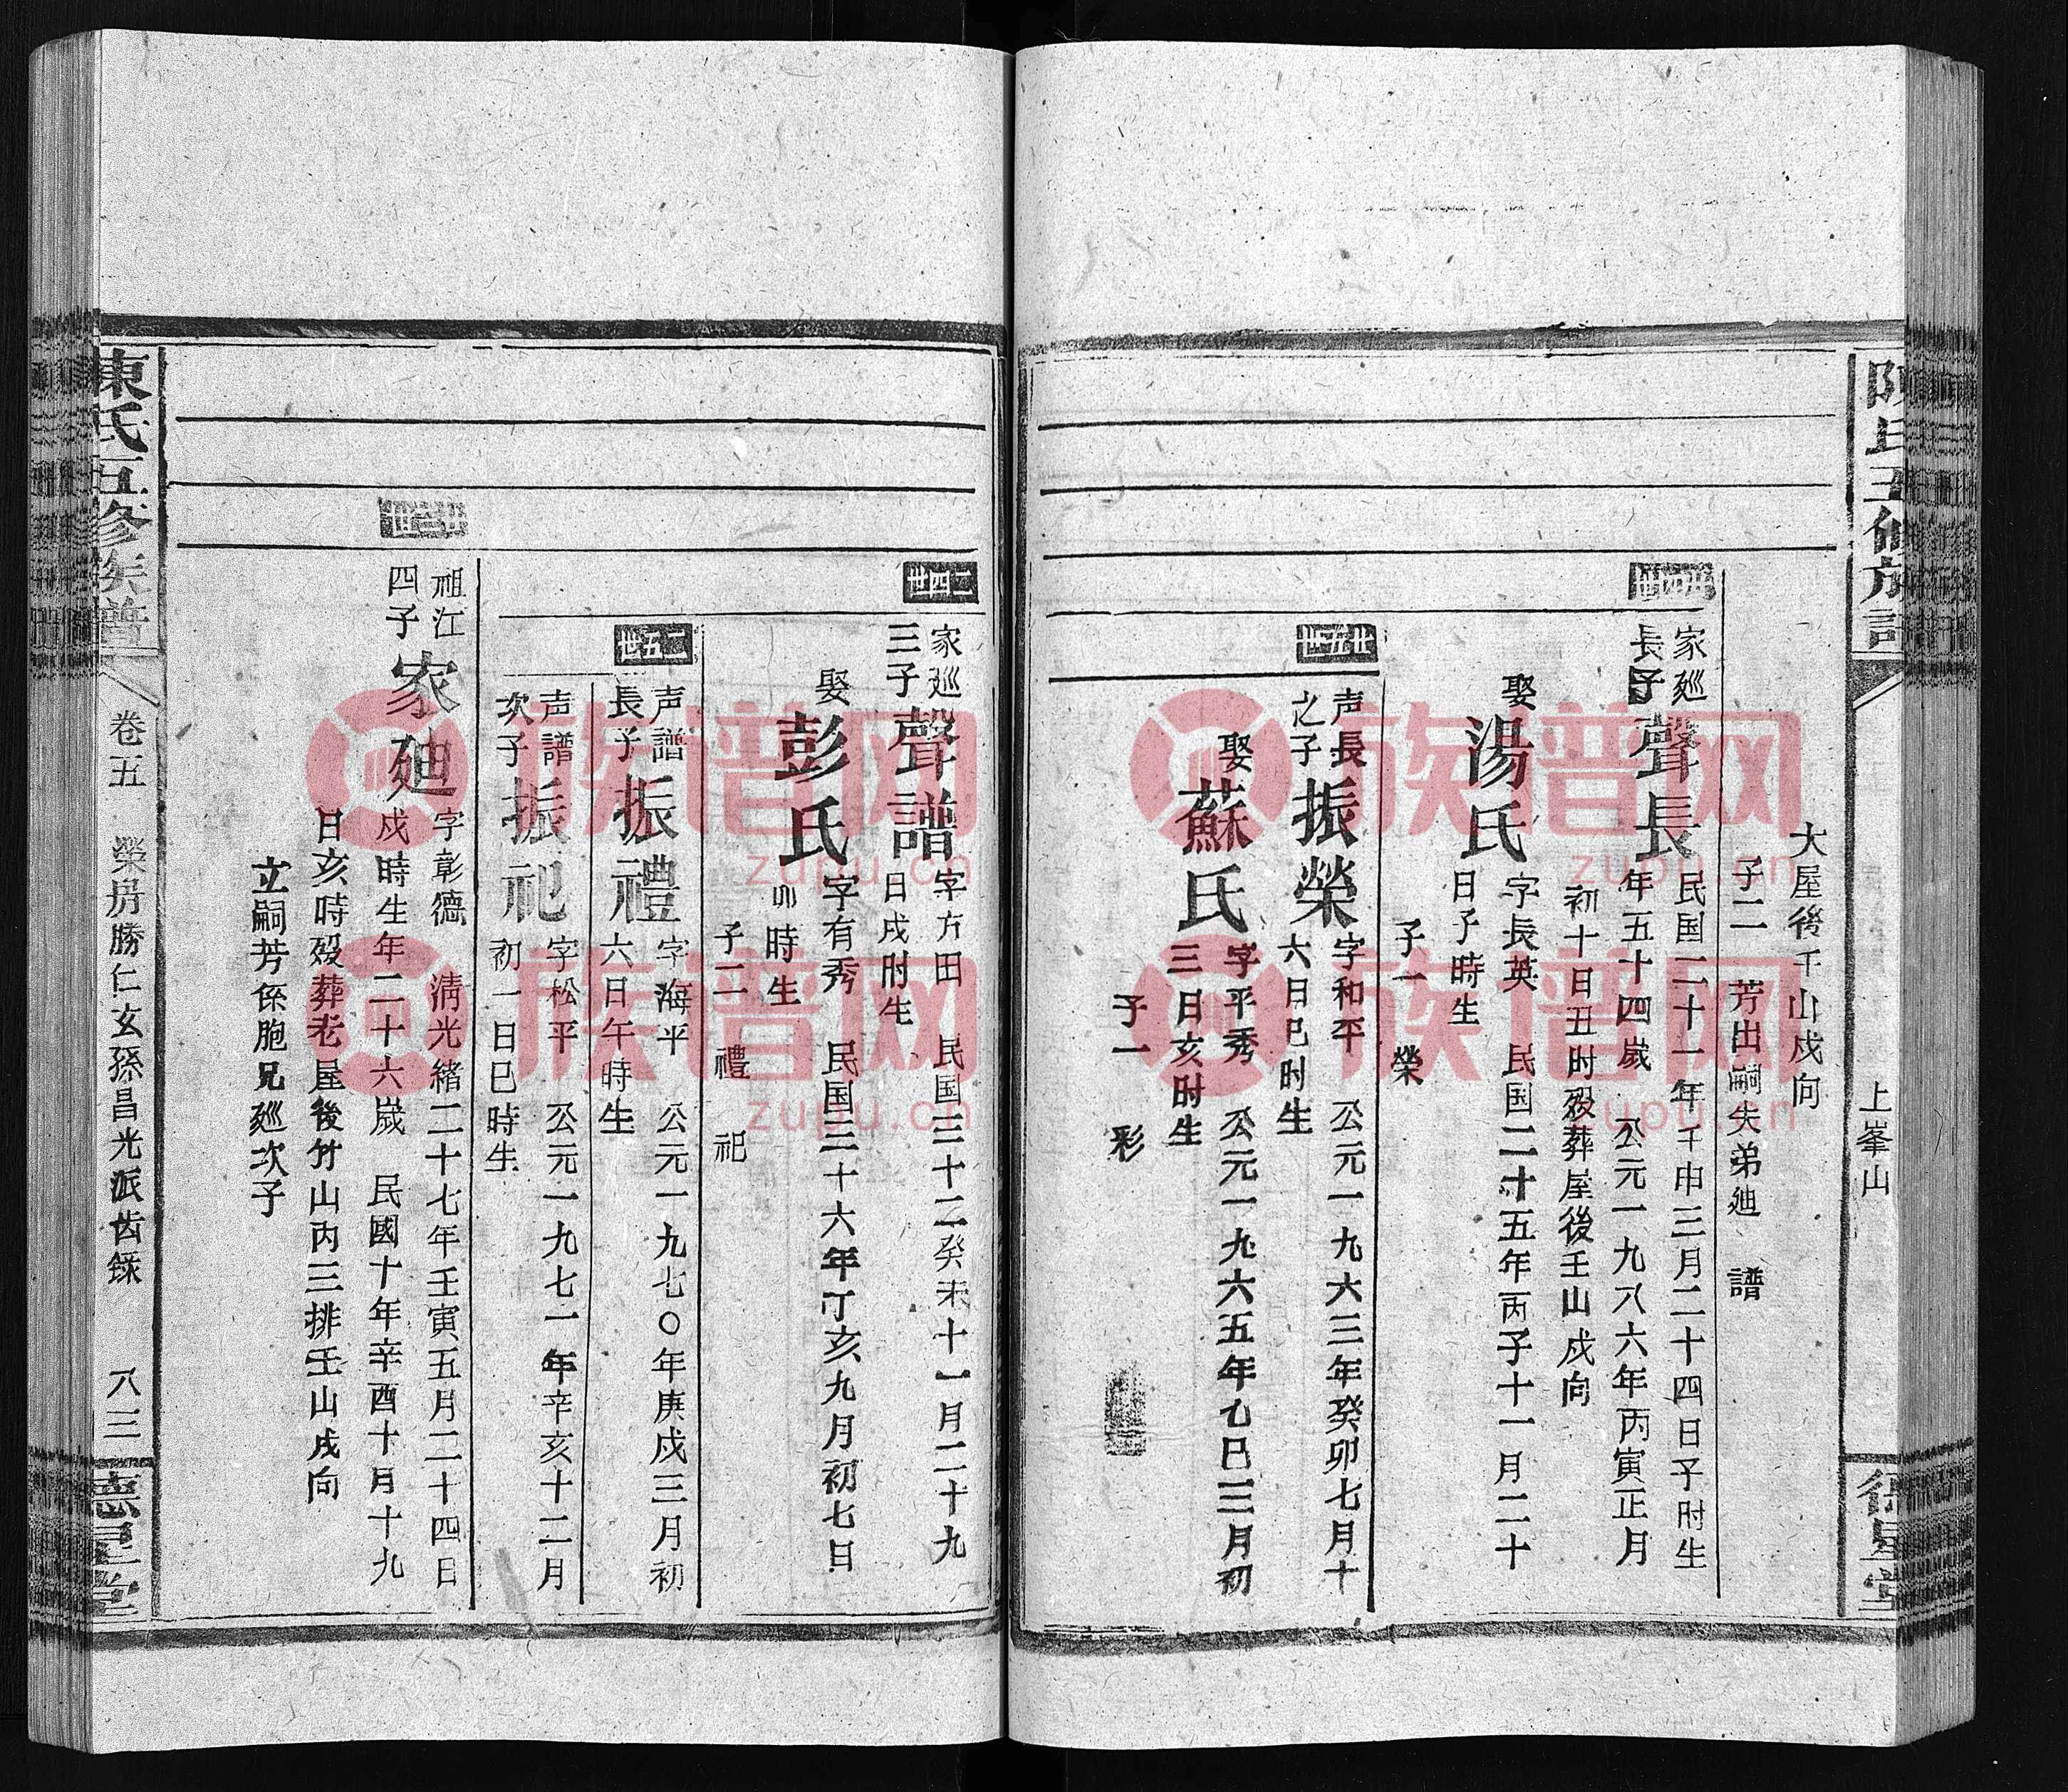 陳氏五修族譜
上峯山
德星堂
大屋後壬山戍向
子二 芳出嗣失弟廸 譜
廿四世
家廵
長子
聲長
民国二十一年壬申三月二十四日子时生
年五十四嵗 公元一九八六年丙寅正月
初十日丑时殁葬屋後壬山戍向
娶
湯氏
字長英 民国二十五年丙子十一月二十
日子時生
子一 榮
廿五世
声長
之子
振榮
字和平 公元一九六三年癸卯七月十
六日巳时生
娶
蘇氏
字平秀 公元一九六五年乙巳三月初
三日亥时生
子一 彩
二四世
家廵
三子
聲譜
字方田 民国三十二癸未十一月二十九
日戍时生
娶
彭氏
字有秀 民国三十六年丁亥九月初七日
卯時生
子二 禮 祀
二五世
声譜
長子
振禮
字海平 公元一九七〇年庚戍三月初
六日午時生
声譜
次子
振祀
字松平 公元一九七一年辛亥十二月
初一日巳時生
廿三世
祖江
四子
家廸
字彰德 淸光緒二十七年壬寅五月二十四日
戍時生年二十六嵗 民國十年辛酉十月十九
日亥時殁葬老屋後竹山丙三排壬山戍向
立嗣芳係胞兄廵次子
陳氏五修族譜
卷五 榮房勝仁玄孫昌光派齿錄 八三
德星堂
族谱网
zupu.cn
族谱网
zupu.cn
族谱网
zupu.cn
族谱网
zupu.cn